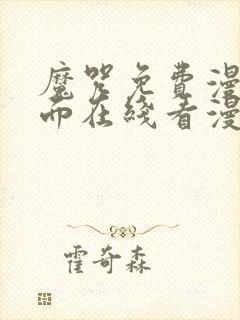 魔咒免费漫
而在线看漫
霍奇森